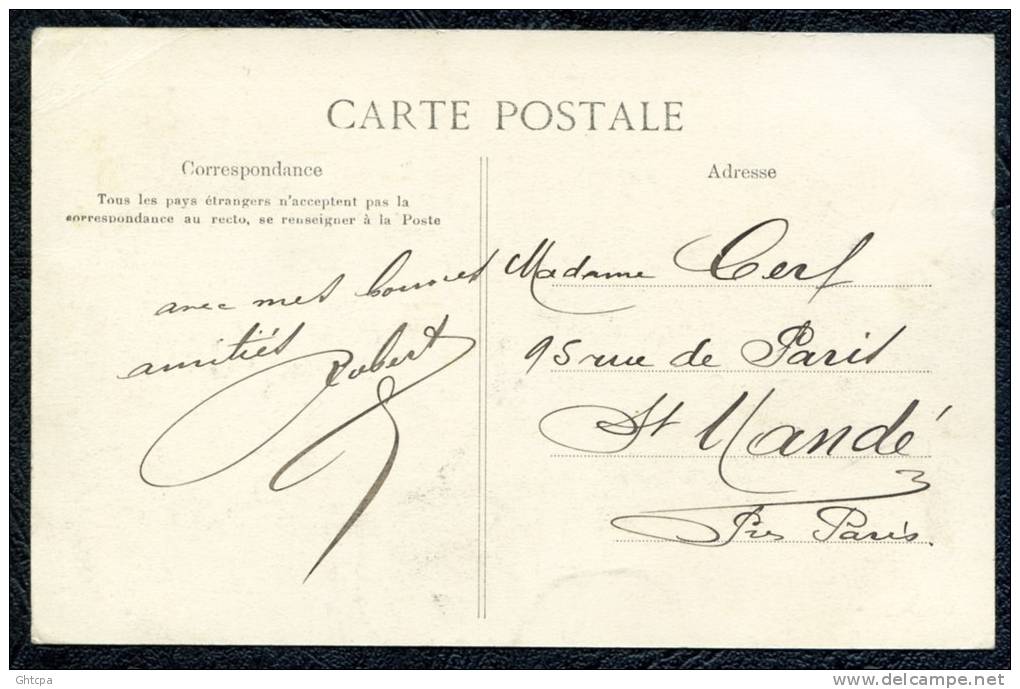 CARTE POSTALE
Correspondance
Tous les pays étrangers n'acceptent pas la
correspondance au recto, se renseigner à la Poste
avec mes bonnes
amitiés
Robert
Adresse
Madame Cerf
95 rue de Paris
St Mandé
Près Paris.
Ghtcpa
delcampe.net